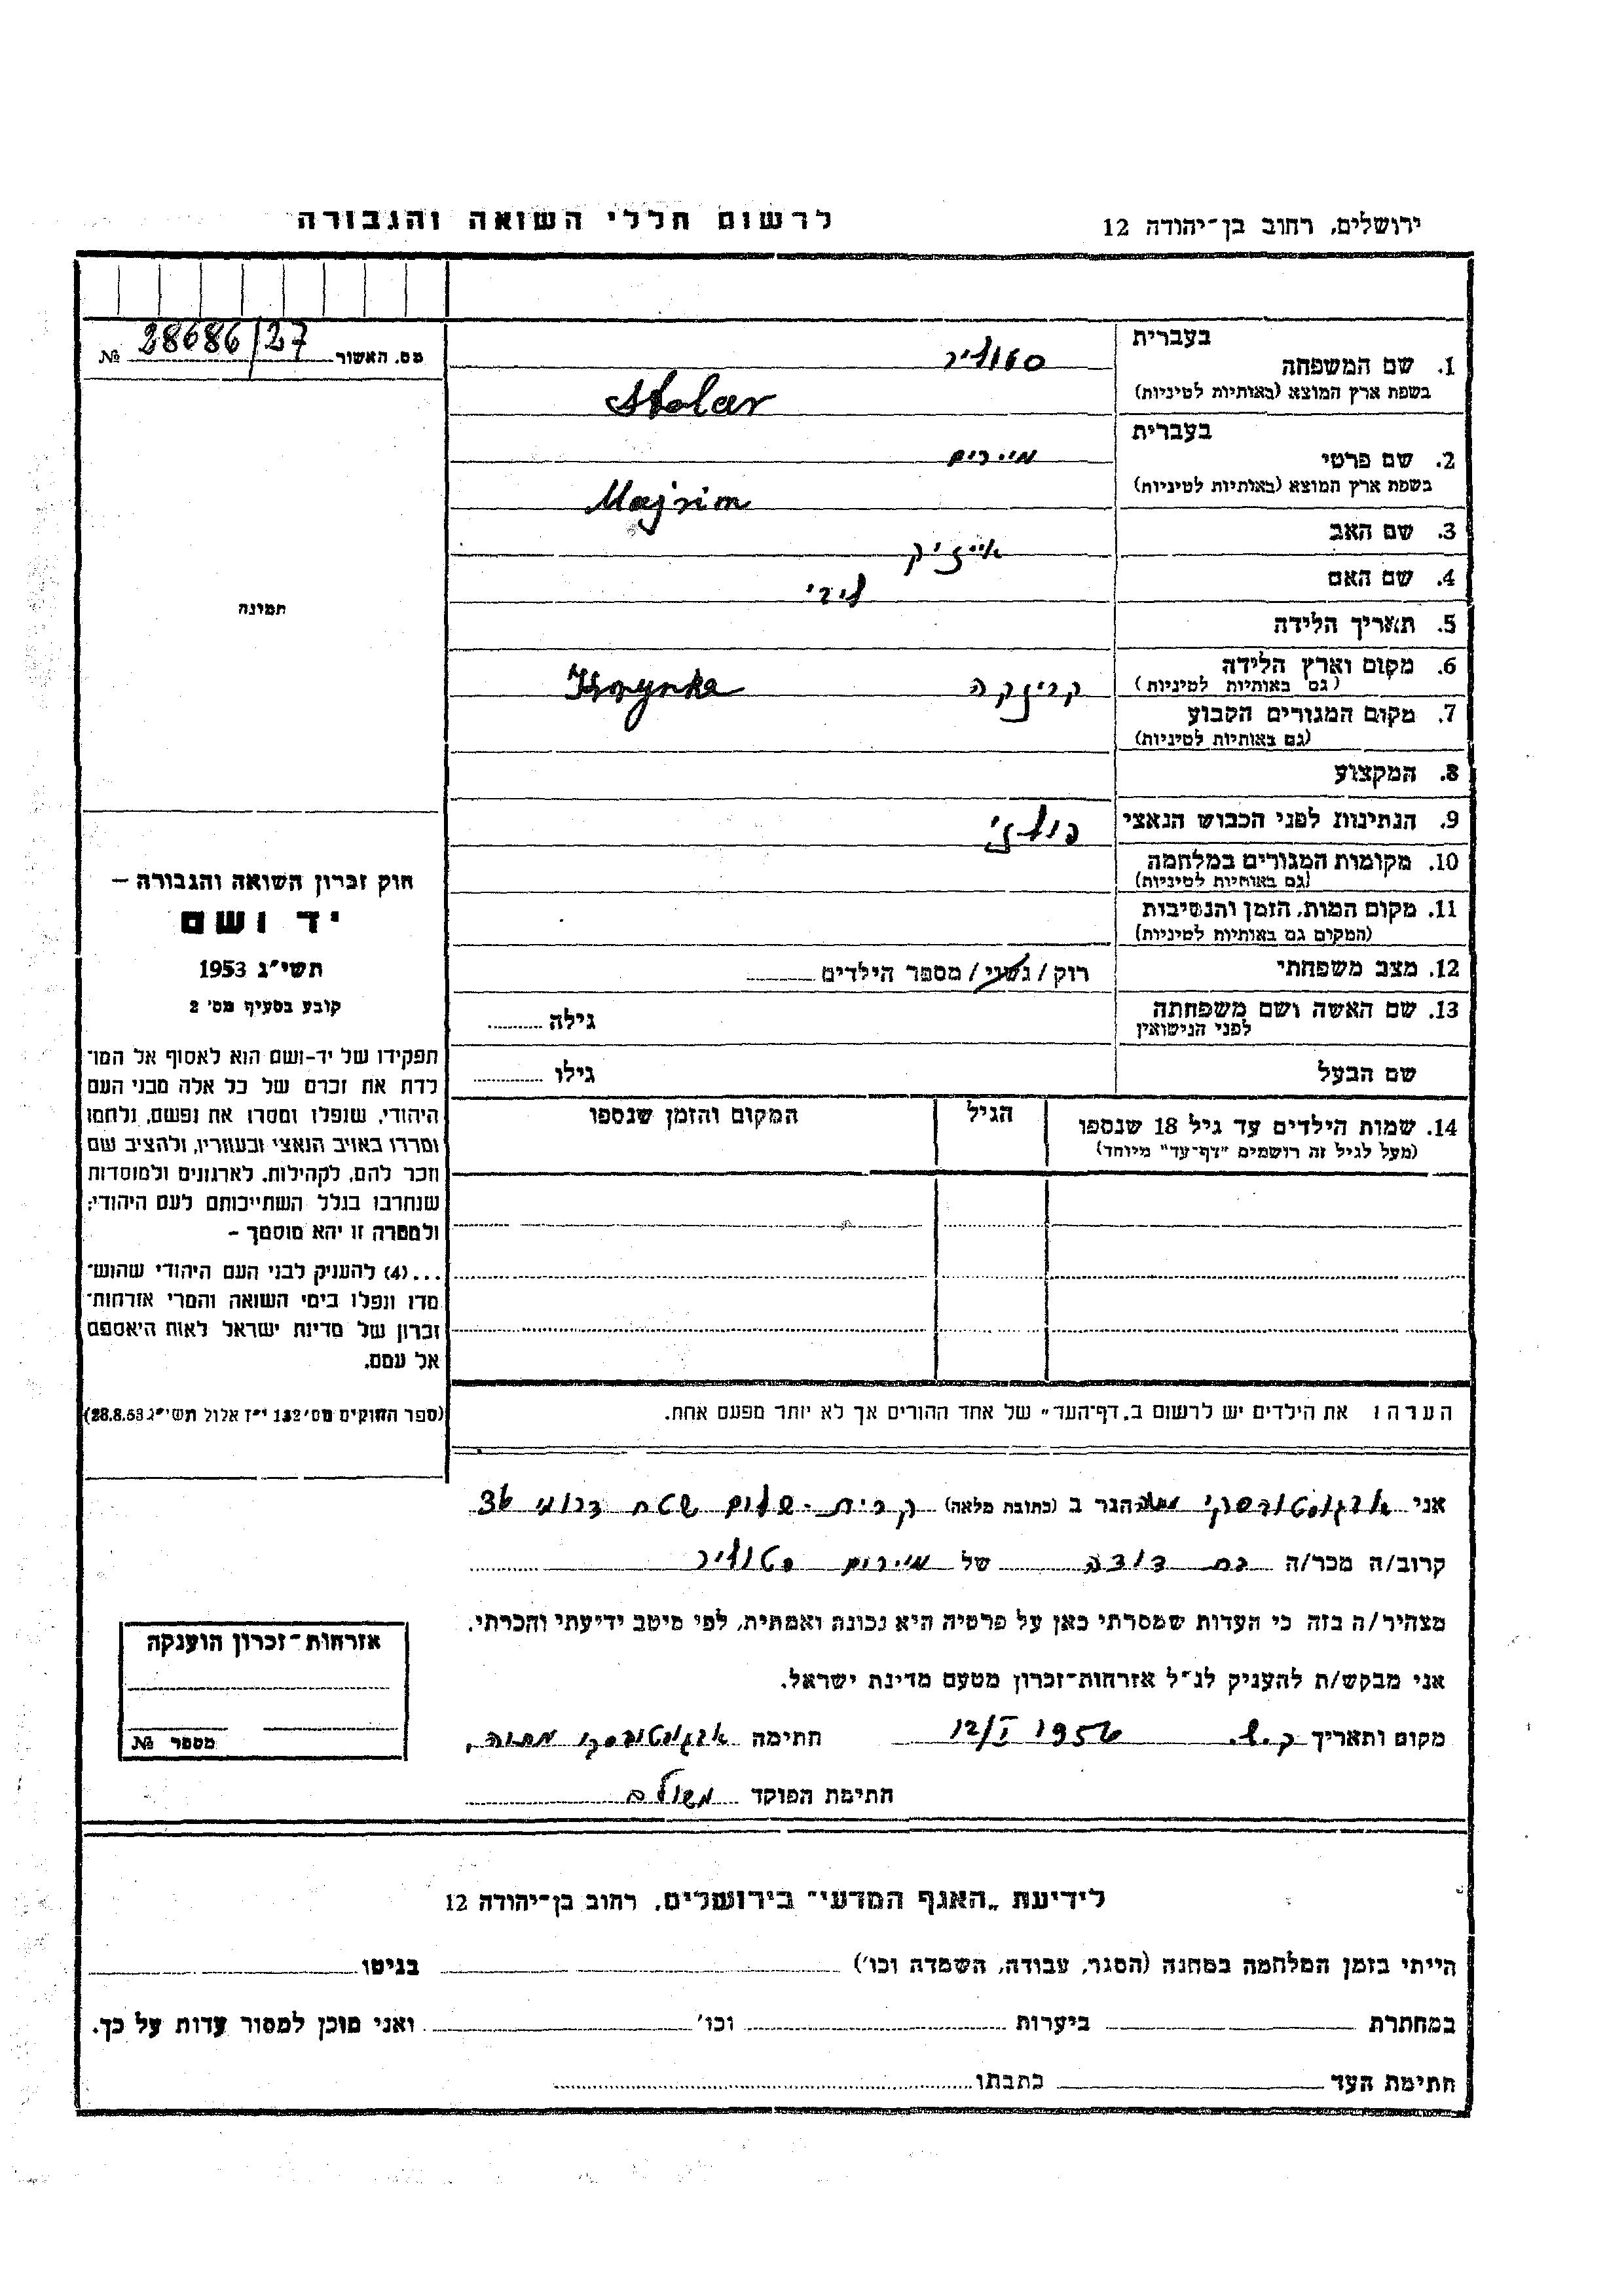 ירושלים, רחוב בן־יהודה 12
לרשום חללי השואה והגבורה
מס. האשור 28686/27 №
בעברית
1. שם המשפחה סטוליר
בשפת ארץ המוצא (באותיות לטיניות) Stolar
בעברית
2. שם פרטי מיירים
בשפת ארץ המוצא (באותיות לטיניות) Majrim
3. שם האב אייזיק
4. שם האם
5. תאריך הלידה
6. מקום וארץ הלידה קרינקה Krynka
(גם באותיות לטיניות)
7. מקום המגורים הקבוע
(גם באותיות לטיניות)
8. המקצוע
9. הנתינות לפני הכבוש הנאצי פולני
10. מקומות המגורים במלחמה
(גם באותיות לטיניות)
11. מקום המות, הזמן והנסיבות
(המקום גם באותיות לטיניות)
12. מצב משפחתי רוק / נשוי / מספר הילדים
13. שם האשה ושם משפחתה גילה
לפני הנישואין
שם הבעל גילו
14. שמות הילדים עד גיל 18 שנספו הגיל המקום והזמן שנספו
(מעל לגיל זה רושמים "דף־עד" מיוחד)
הערה: את הילדים יש לרשום ב„דף־העד" של אחד ההורים אך לא יותר מפעם אחת.
תמונה
חוק זכרון השואה והגבורה –
יד ושם
תשי"ג 1953
קובע בסעיף מס' 2
תפקידו של יד-ושם הוא לאסוף אל המו־
לדת את זכרם של כל אלה מבני העם
היהודי, שנפלו ומסרו את נפשם, נלחמו
ומרדו באויב הנאצי ובעוזריו, ולהציב שם
וזכר להם, לקהילות, לארגונים ולמוסדות
שנחרבו בגלל השתייכותם לעם היהודי;
ולמטרה זו יהא מוסמך –
...(4) להעניק לבני העם היהודי שהוש־
מדו ונפלו בימי השואה והמרי אזרחות־
זכרון של מדינת ישראל לאות היאספם
אל עמם.
(ספר החוקים מס' 132 י"ז אלול תשי"ג 28.8.53)
אני הגר ב (כתובת מלאה) קרית-שלום שטח דרומי 36
קרוב/ה מכר/ה בת דודה של מיירים סטוליר
מצהיר/ה בזה כי העדות שמסרתי כאן על פרטיה היא נכונה ואמתית, לפי מיטב ידיעתי והכרתי.
אני מבקש/ת להעניק לנ"ל אזרחות־זכרון מטעם מדינת ישראל.
מקום ותאריך ק.ש. 12/I 1956 חתימה
חתימת הפוקד משולם
אזרחות־זכרון הוענקה
מספר №
לידיעת „האגף המדעי" בירושלים, רחוב בן־יהודה 12
הייתי בזמן המלחמה במחנה (הסגר, עבודה, השמדה וכו') בגיטו
במחתרת ביערות וכו' ואני מוכן למסור עדות על כך.
חתימת העד כתבתו